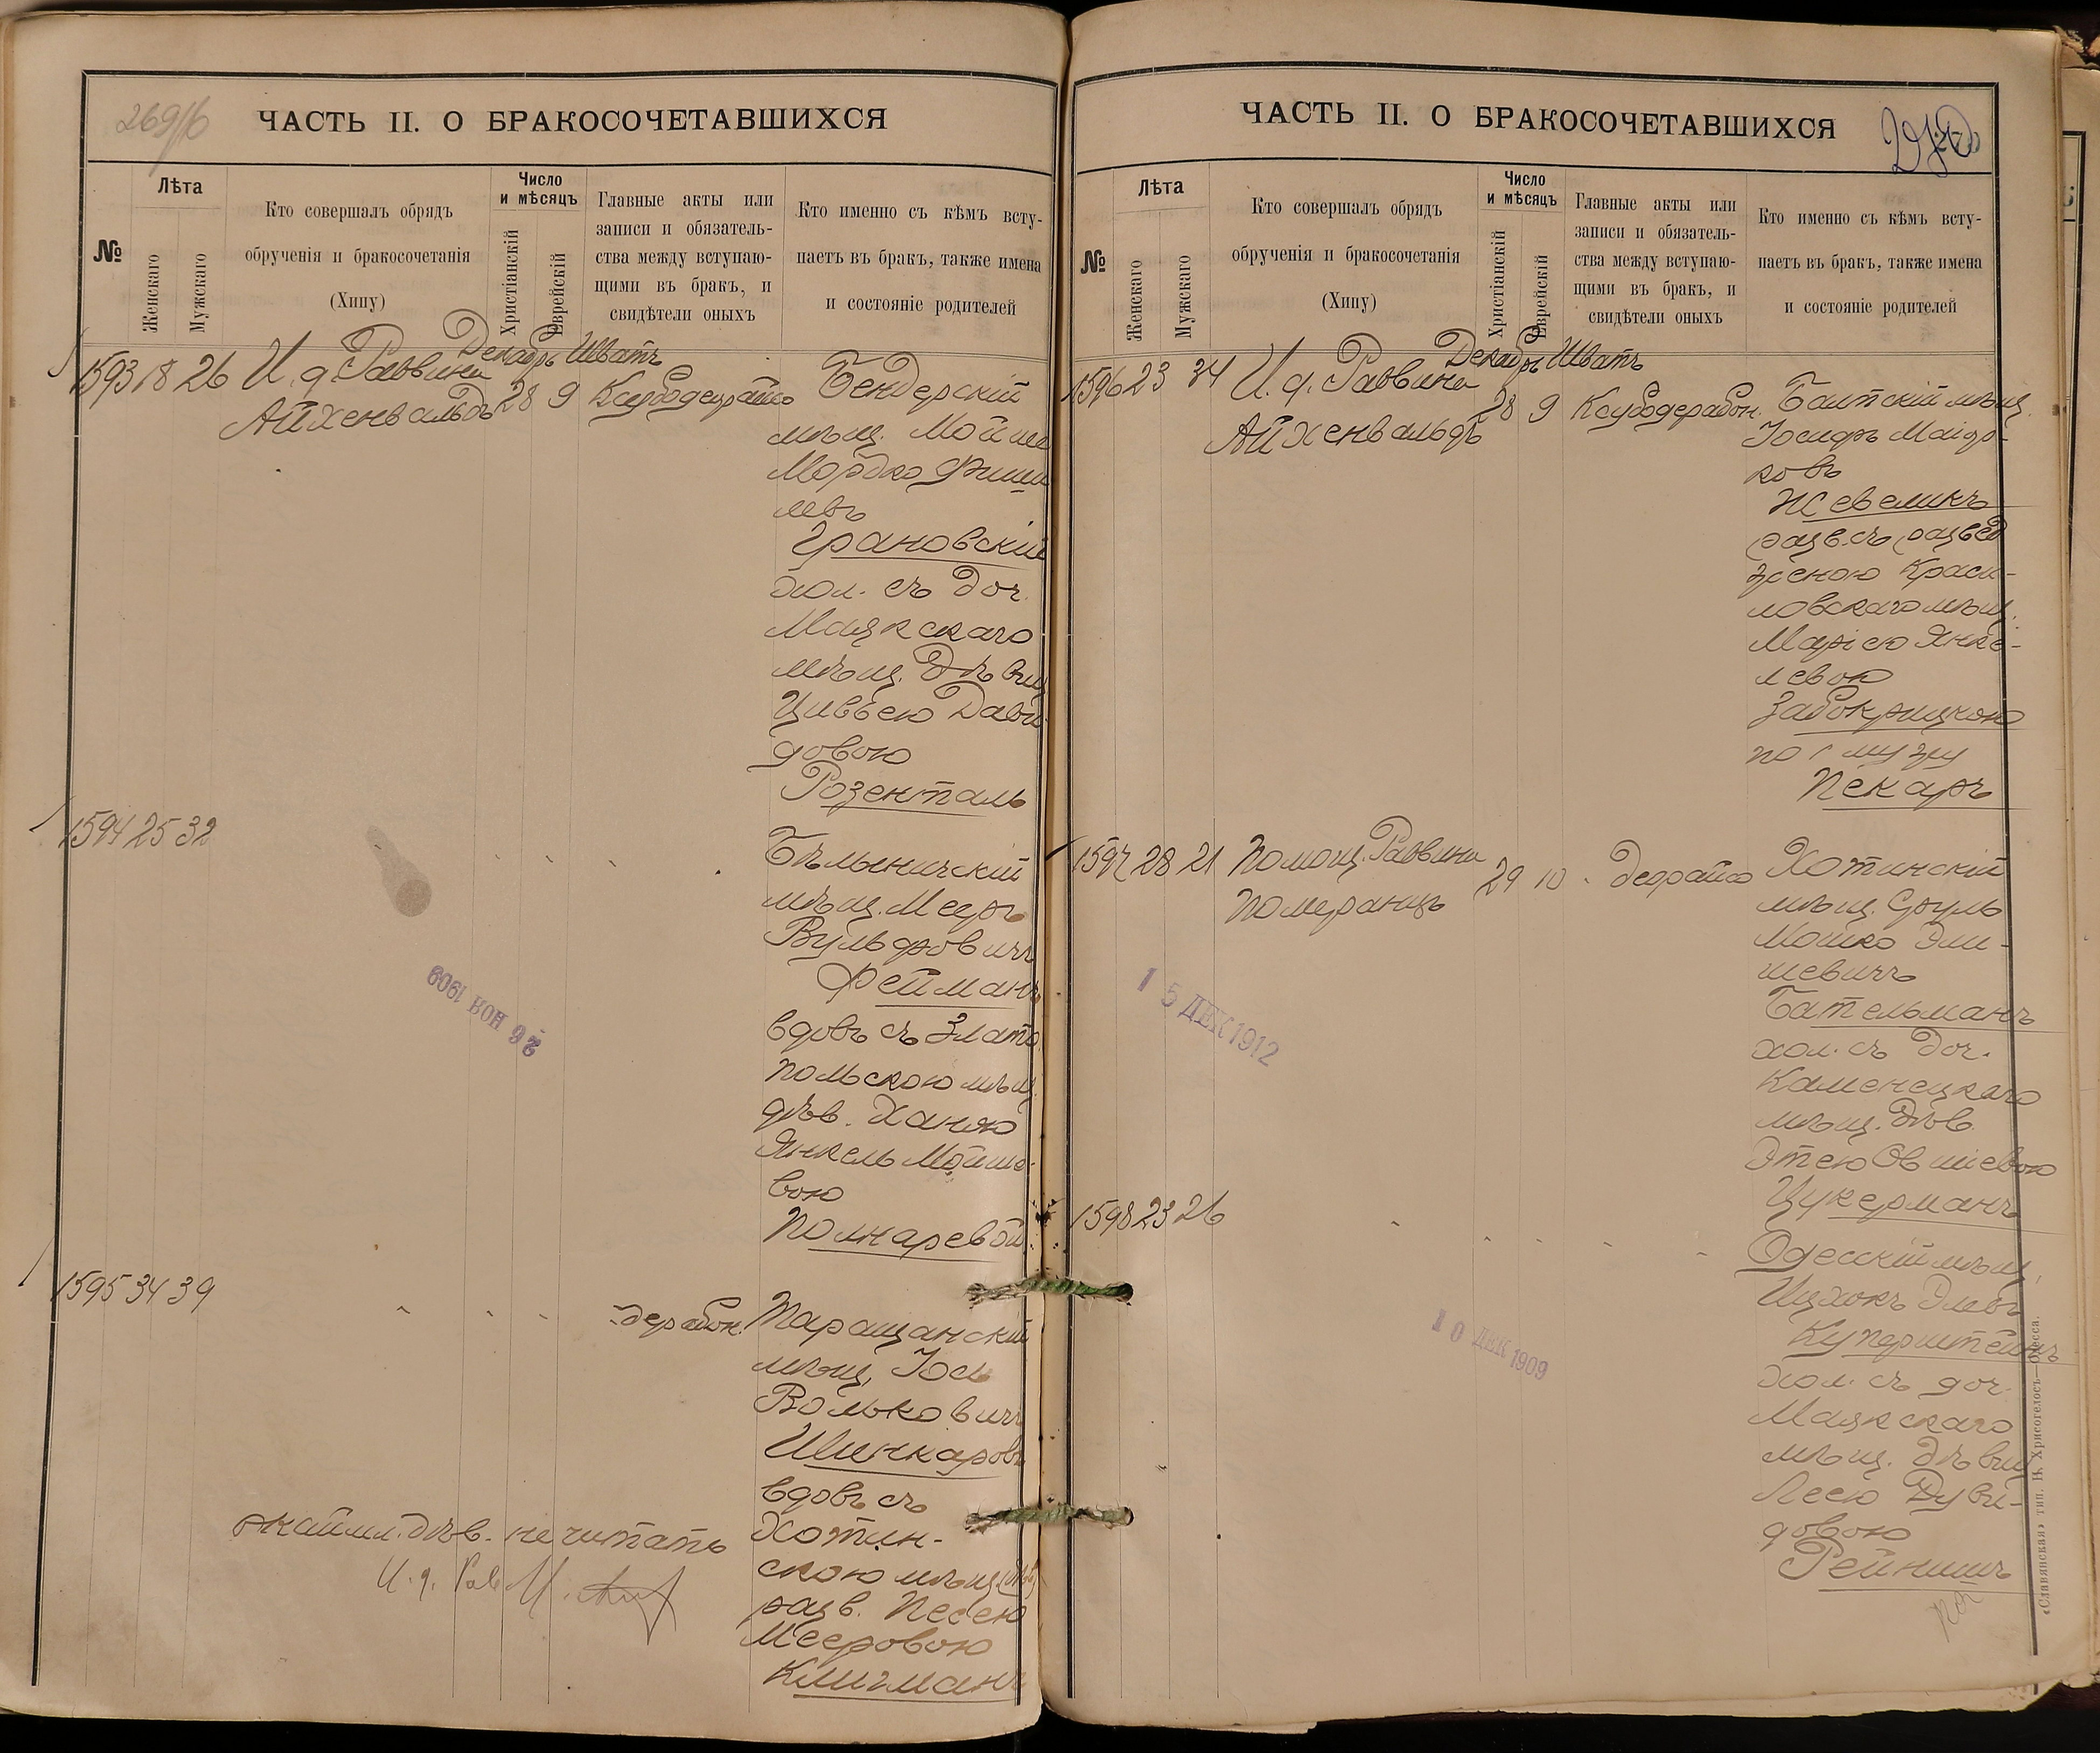 269/б
ЧАСТЬ II. О БРАКОСОЧЕТАВШИХСЯ
№
Лѣта
Женскаго
Мужскаго
Кто совершалъ обрядъ
обрученія и бракосочетанія
(Хипу)
Число
и мѣсяцъ
Христіанскій
Еврейскій
Главные акты или
записи и обязатель-
ства между вступаю-
щими въ бракъ, и
свидѣтели оныхъ
Кто именно съ кѣмъ всту-
паетъ въ бракъ, также имена
и состояніе родителей
Декабрь Шватъ
1593 18 26 И. д. Раввина 28 9
Айхенвальдъ
Бендерскій
мѣщ. Мойше
Мордко Фиши
левъ
Грановскій
хол. съ доч.
Маякскаго
мѣщ. Дѣвиц
Цивьею Дави
довою
Розенталь
1594 25 32
Бѣлыничскій
мѣщ. Мееръ
Вульфовичъ
Фейманъ
вдовъ съ Злато
польскою мѣщ
дѣв. Ханою
Янкель Мойше-
вою
26 НОЯ 1909
1595 34 39
Таращанскій
мѣщ. Іось
Вольковичъ
Шинкаровъ
вдовъ съ
Хотин-
скою мѣщ.
разв. Песею
Мееровою
Клигманъ
дѣв. не читать
И. д. Рав
ЧАСТЬ II. О БРАКОСОЧЕТАВШИХСЯ
№
Лѣта
Женскаго
Мужскаго
Кто совершалъ обрядъ
обрученія и бракосочетанія
(Хипу)
Число
и мѣсяцъ
Христіанскій
Еврейскій
Главные акты или
записи и обязатель-
ства между вступаю-
щими въ бракъ, и
свидѣтели оныхъ
Кто именно съ кѣмъ всту-
паетъ въ бракъ, также имена
и состояніе родителей
Декабрь Шватъ
1596 23 34 И. д. Раввина 28 9
Айхенвальдъ
Балтскій мѣщ.
Іосифъ
ковъ
Жевеликъ
разв. съ развед
женою Краси-
ловскаго мѣщ.
Маріею Янке-
левою
Забокрицкою
по 1 мужу
Пекаръ
1597 28 21 Помощ. Раввина 29 10
Померанцъ
Хотинскій
мѣщ. Сруль
Мошко Эли-
шевичъ
Бательманъ
хол. съ доч.
Каменецкаго
мѣщ. Дѣв.
Этею Овшіевою
Цукерманъ
15 ДЕК 1912
1598 23 26
Одесскій мѣщ.
Ицхокъ Элевъ
Куперштейнъ
хол. съ доч.
Маякскаго
мѣщ. Дѣвиц
Леею Дуви-
довою
Рейнишъ
10 ДЕК 1909
«Славянская» тип. Н. Хрисогелосъ—Одесса.